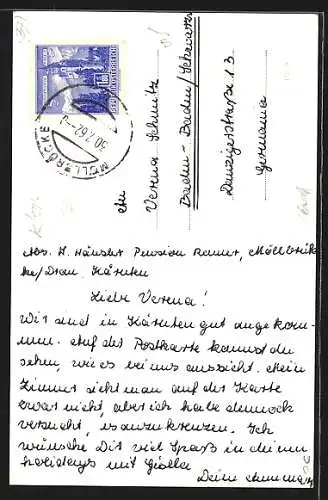 REPUBLIK ÖSTERREICH
MÖLLBRÜCKE
30.7.62
An
Verena Schmitz
Baden-Baden/Schwarzw.
Danzigerstraße 13
Germania
Abs. H. Hänsler Pension Renner, Möllbrük-
ke/Drau. Kärnten
Liebe Verena!
Wir sind in Kärnten gut angekom-
men. Auf der Postkarte kannst du
sehen, wie es bei uns aussieht. Mein
Zimmer sieht man auf der Karte
zwar nicht, aber ich habe dennoch
versucht, es anzukreuzen. Ich
wünsche Dir viel Spaß in deinen
holidays mit
Deine